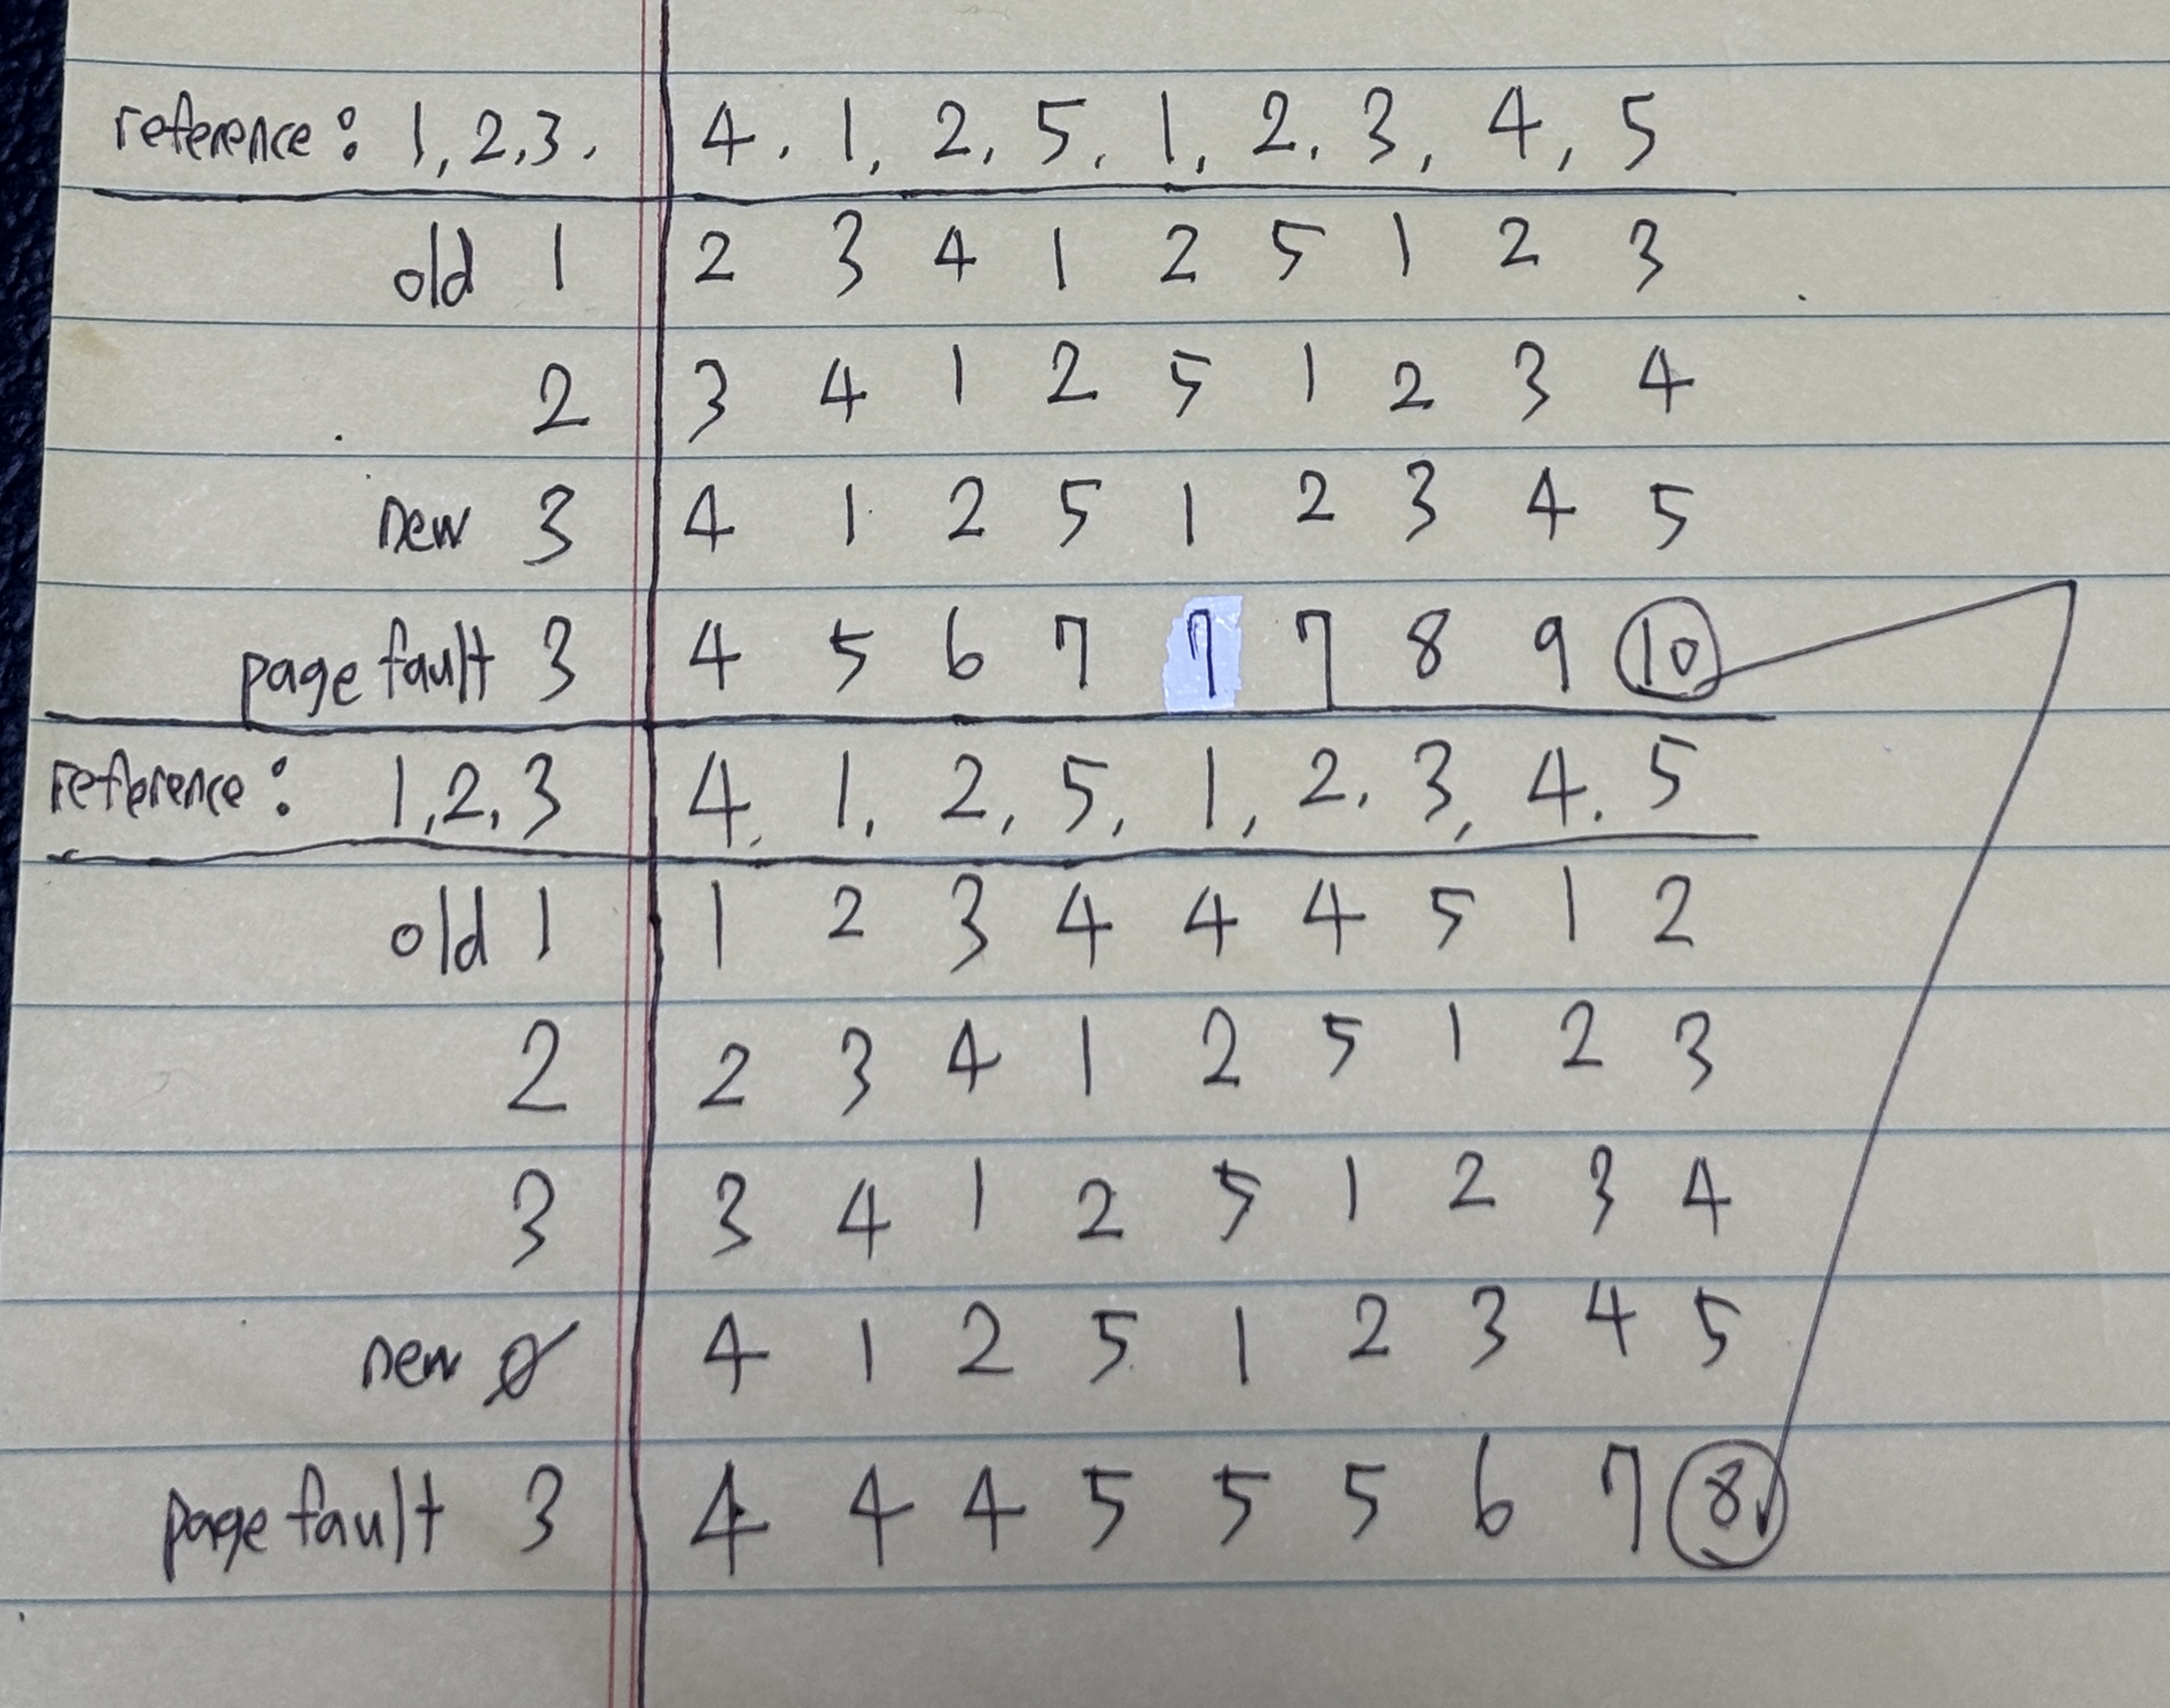 reference: 1, 2, 3, 4, 1, 2, 5, 1, 2, 3, 4, 5
old 1 2 3 4 1 2 5 1 2 3
2 3 4 1 2 5 1 2 3 4
new 3 4 1 2 5 1 2 3 4 5
page fault 3 4 5 6 7 7 7 8 9 10
reference: 1, 2, 3 4, 1, 2, 5, 1, 2, 3, 4, 5
old 1 1 2 3 4 4 4 5 1 2
2 2 3 4 1 2 5 1 2 3
3 3 4 1 2 5 1 2 3 4
new Ø 4 1 2 5 1 2 3 4 5
page fault 3 4 4 4 5 5 5 6 7 8